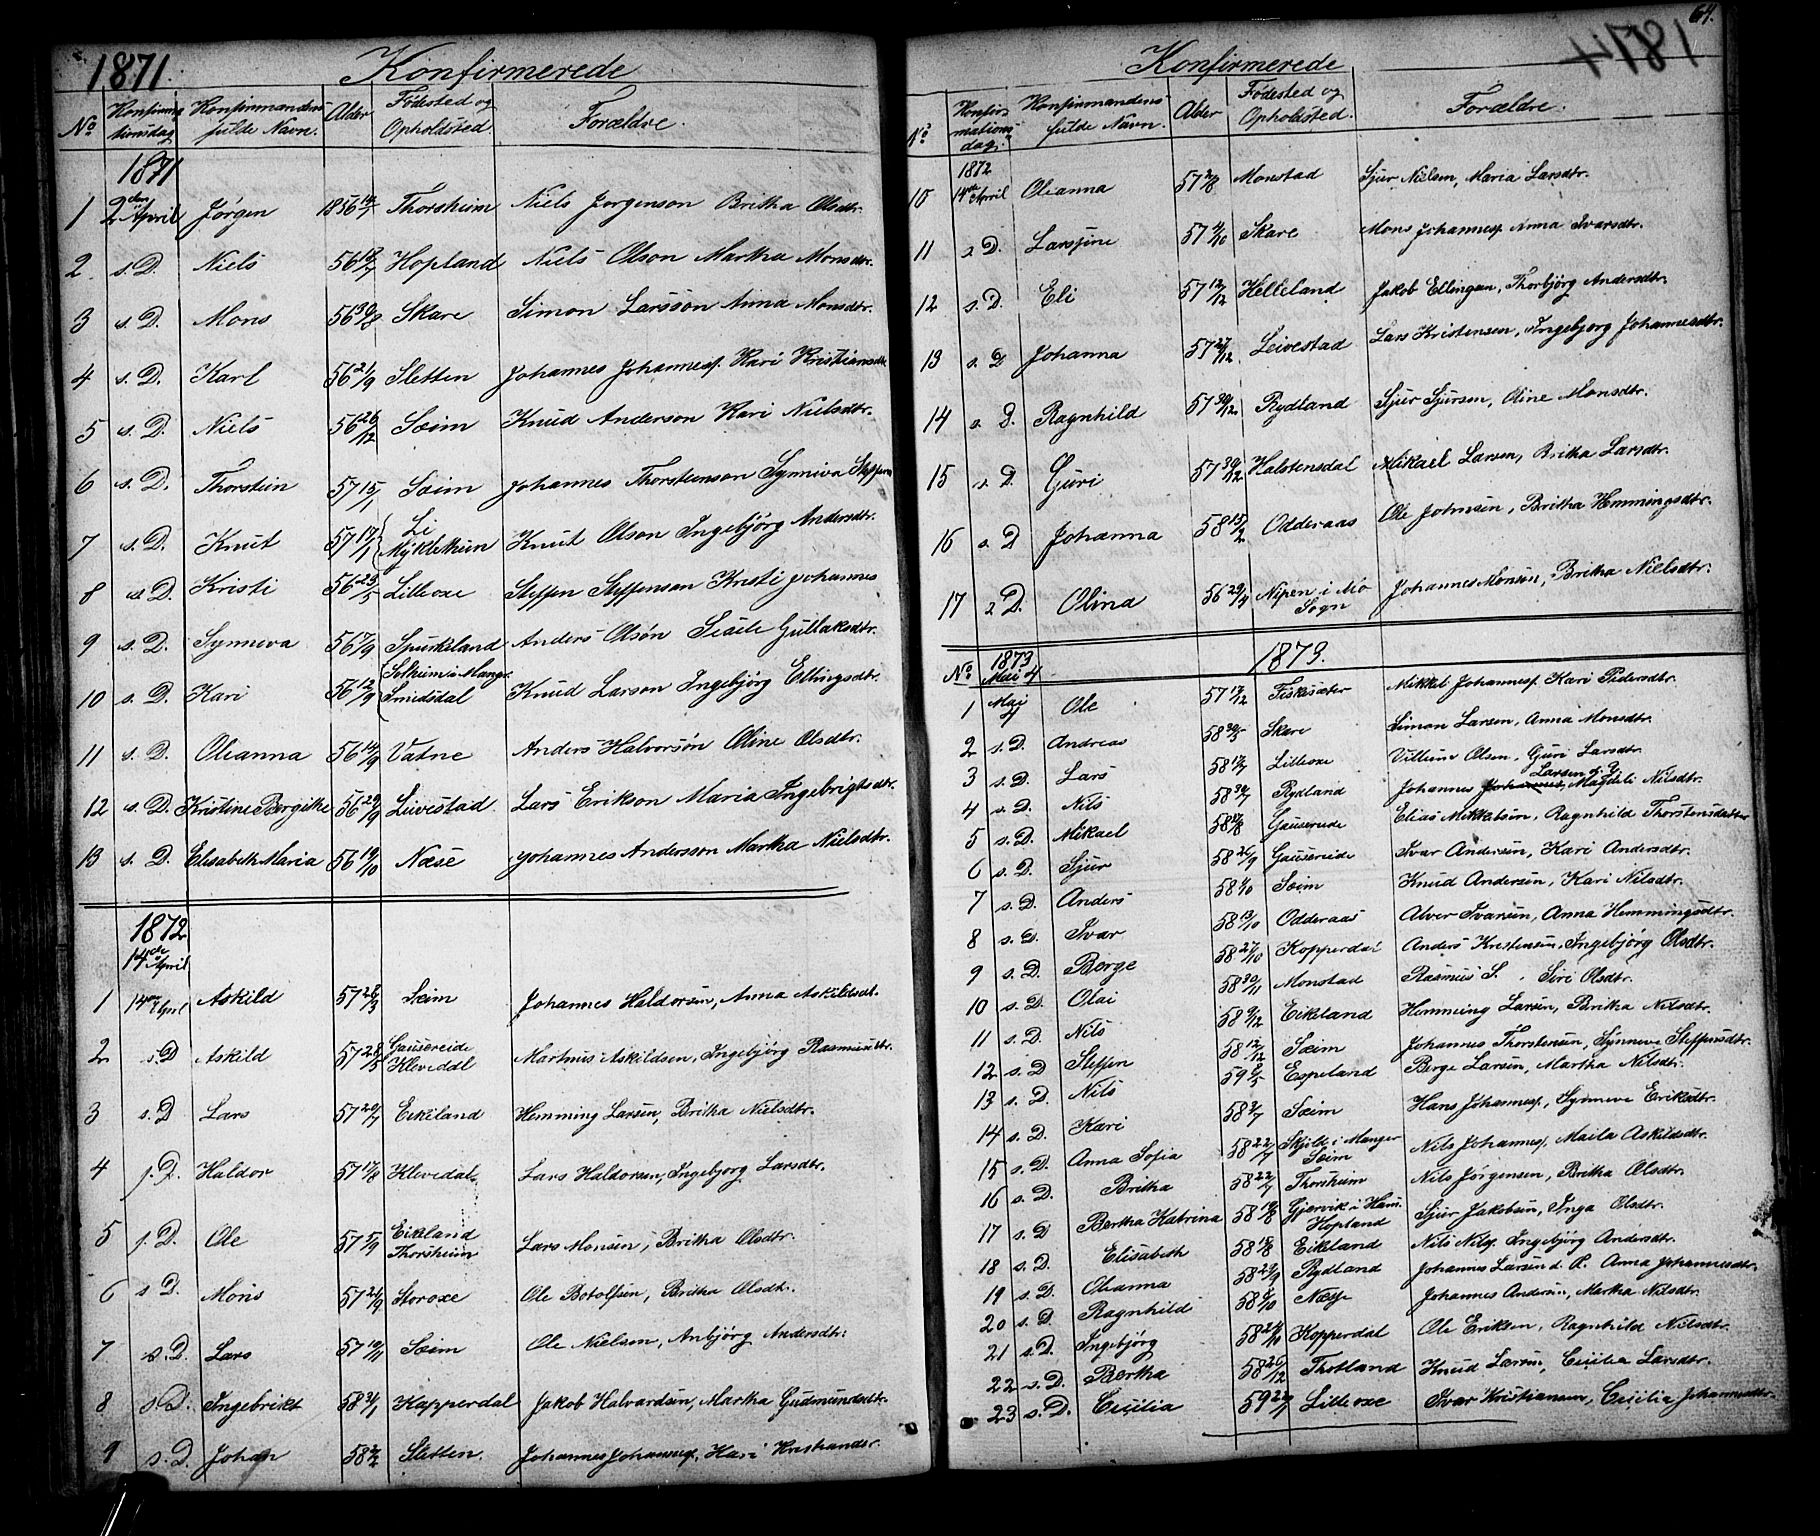 1871. Konfirmerede
No Konfirmationsdag Konfirmandens fulde Navn. Alder Fødested og Opholdsted. Forældre.
1871
1 2den April Jørgen 1856 14/7 Thorsheim Niels Jørgenson Britha Olsdtr.
2 s. D. Niels 56 18/7 Hopland Niels Olson Martha Monsdtr.
3 s. D. Mons 56 30/8 Skare Simon Larsson Anna Monsdtr.
4 s. D. Karl 56 21/9 Sletten Johannes Johannesp. Kari Kristiansdtr
5 s. D. Niels 56 26/12 Sæim Knud Anderson Kari Nielsdtr.
6 s. D. Thorstein 57 15/1 Sæim Johannes Thorstenson Synneva Steffens
7 s. D. Knut 57 17/1 Li Myklethun Knut Olson Ingebjörg Andersdtr.
8 s. D. Kristi 56 25/5 Lilleoxe Steffen Steffenson Kristi Johannes
9 s. D. Synneva 56 7/9 Spurkeland Anders Olsøn Sisele Gullaksdtr.
10 s. D. Kari 56 12/9 Solheim i Mang. Smidsdal Knud Larson Ingebjörg Ellingsdtr.
11 s. D. Oleanna 56 14/9 Vatne Anders Halvorsøn Oline Olsdtr.
12 s. D. Kristine Bergithe 56 29/9 Leivestad Lars Erikson Maria Ingebrigtsdtr.
13 s. D. Elisabeth Maria 56 19/10 Næse Johannes Andersson Martha Nielsdtr.
1872
14de April
1 14de April Askild 57 28/3 Seim Johannes Haldorsen, Anna Askildsdt.
2 s. D Askild 57 28/5 Gausereide Klevedal Martinus Askildsen, Ingebjörg Rasmusdtr.
3 s. D Lars 57 20/7 Eikeland Hemming Larsen, Britha Nielsdtr.
4 s. D. Haldor 57 17/8 Klevedal Lars Haldorsen, Ingebjorg Larsdtr.
5 s. D. Ole 57 5/9 Eikeland Thorsheim Lars Monsen, Britha Olsdtr.
6 s D. Mons 57 21/9 Storoxe Ole Botolfsen, Britha Olsdt.
7 s. D. Lars 57 10/11 Sæim Ole Nielsen, Anbjørg Andersdtr.
8 s. D. Ingebrikt 58 31/1 Kopperdal Jakob Halvardsen, Martha Gudmundsdtr.
9 s. D. Johan 58 2/2 Sletten. Johannes Johannesp. Kari Kristiansdr.
64.
1874
Konfirmerede
No Konfirmationsdag. Konfirmandens fulde Navn. Alder Fødested og Opholdsted. Forældre.
1872
10 14de April Oleanna 57 2/8 Monstad Sjur Nielsen, Maria Larsdtr.
11 s. D. Larsine 57 4/10 Skare Mons Johannesp. Anna Ivarsdtr.
12 s. D. Eli 57 12/12 Helleland Jakob Ellingsen, Thorbjörg Andersdtr.
13 s. D Johanna 57 27/12 Leivestad Lars Kristensen, Ingebjorg Johannesdtr.
14 s. D. Ragnhild 57 30/12 Rydland Sjur Sjursen, Oline Monsdtr.
15 s. D. Guri 57 30/12 Halstensdal Mikael Larsen, Britha Larsdtr.
16 s. D Johanna 58 15/2 Odderaas Ole Johnsen, Britha Hemmingsdtr.
17 s. D. Olina 56 29/4 Nipen i Mo Sogn Johannes Monsen, Britha Nielsdtr.
No 1873 Mai 4 1873.
1 Mai 4 Ole 57 17/12 Fiskesæter Mikkel Johannesp. Kari Pedersdtr.
2 s. D. Andreas 58 30/5 Skare Simon Larsen, Anna Monsdtr.
3 s. D. Lars 58 17/7 Lilleoxe Villum Olsen, Guri Larsdtr.
4 s. D. Nils 58 30/7 Rydland Johannes Johannes Larsen d. y. Magdeli Nilsdtr.
5 s. D. Mikael 58 17/8 Gausereide Elias Mikkelsen, Ragnhild Thorstensdatter
6 s. D. Sjur 58 26/9 Gausereide Ivar Andersen, Kari Andersdtr.
7 s. D. Anders 58 1/10 Sæim Knud Andersen, Kari Nilsdtr.
8 s. D. Ivar 58 13/10 Odderaas Alver Ivarsen, Anna Hemmingsdtr.
9 s. D. Berge 58 27/10 Kopperdal Anders Kristensen, Ingebjörg Olsdtr.
10 s. D. Olai 58 30/11 Monstad Rasmus S. Siri Olsdtr.
11 s. D. Nils 58 9/12 Eikeland Hemming Larsen, Britha Nilsdtr.
12 s. D Steffen 58 12/12 Sæim Johannes Thorstensen, Synneve Steffensdtr.
13 s. D. Nils 59 2/5 Espeland Berge Larsen, Martha Nilsdtr.
14 s. D. Kari 58 2/7 Sæim Hans Johannesp., Synneve Eriksdtr.
15 s. D. Anna Sofia 58 22/7 Skjelde i Manger Sæim Nils Johannesp. Maila Askildsdtr.
16 s. D. Britha 58 22/7 Thorsheim Nils Jörgensen, Britha Olsdtr.
17 s. D Bertha Katrina 58 19/8 Gjervik i Ham. Hopland Sjur Jakobsen, Inga Olsdtr.
18 s. D. Elisabeth 58 15/8 Eikeland Nils Nilsp. Ingebjörg Andersdtr.
19 s. D. Oleanna 58 29/9 Rydland Johannes Larsen d. Æ. Anna Johannesdtr.
20 s. D. Ragnhild 58 9/10 Næsse Johannes Andersen, Martha Nilsdtr.
21 s. D. Ingebjörg 58 24/11 Kopperdal Ole Eriksen, Ragnhild Nilsdtr.
22 s. D. Bertha 58 26/12 Thotland Knud Larsen, Cicilia Larsdtr.
23 s. D. Cicilia 59 22/1 Lilleoxe Ivar Kristiansen, Cecilia Johannesdtr.